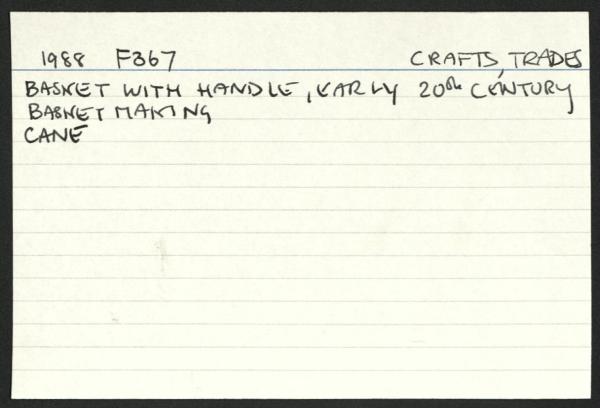 1988 F367 CRAFTS, TRADES
BASKET WITH HANDLE, EARLY 20th CENTURY
BASKET MAKING
CANE